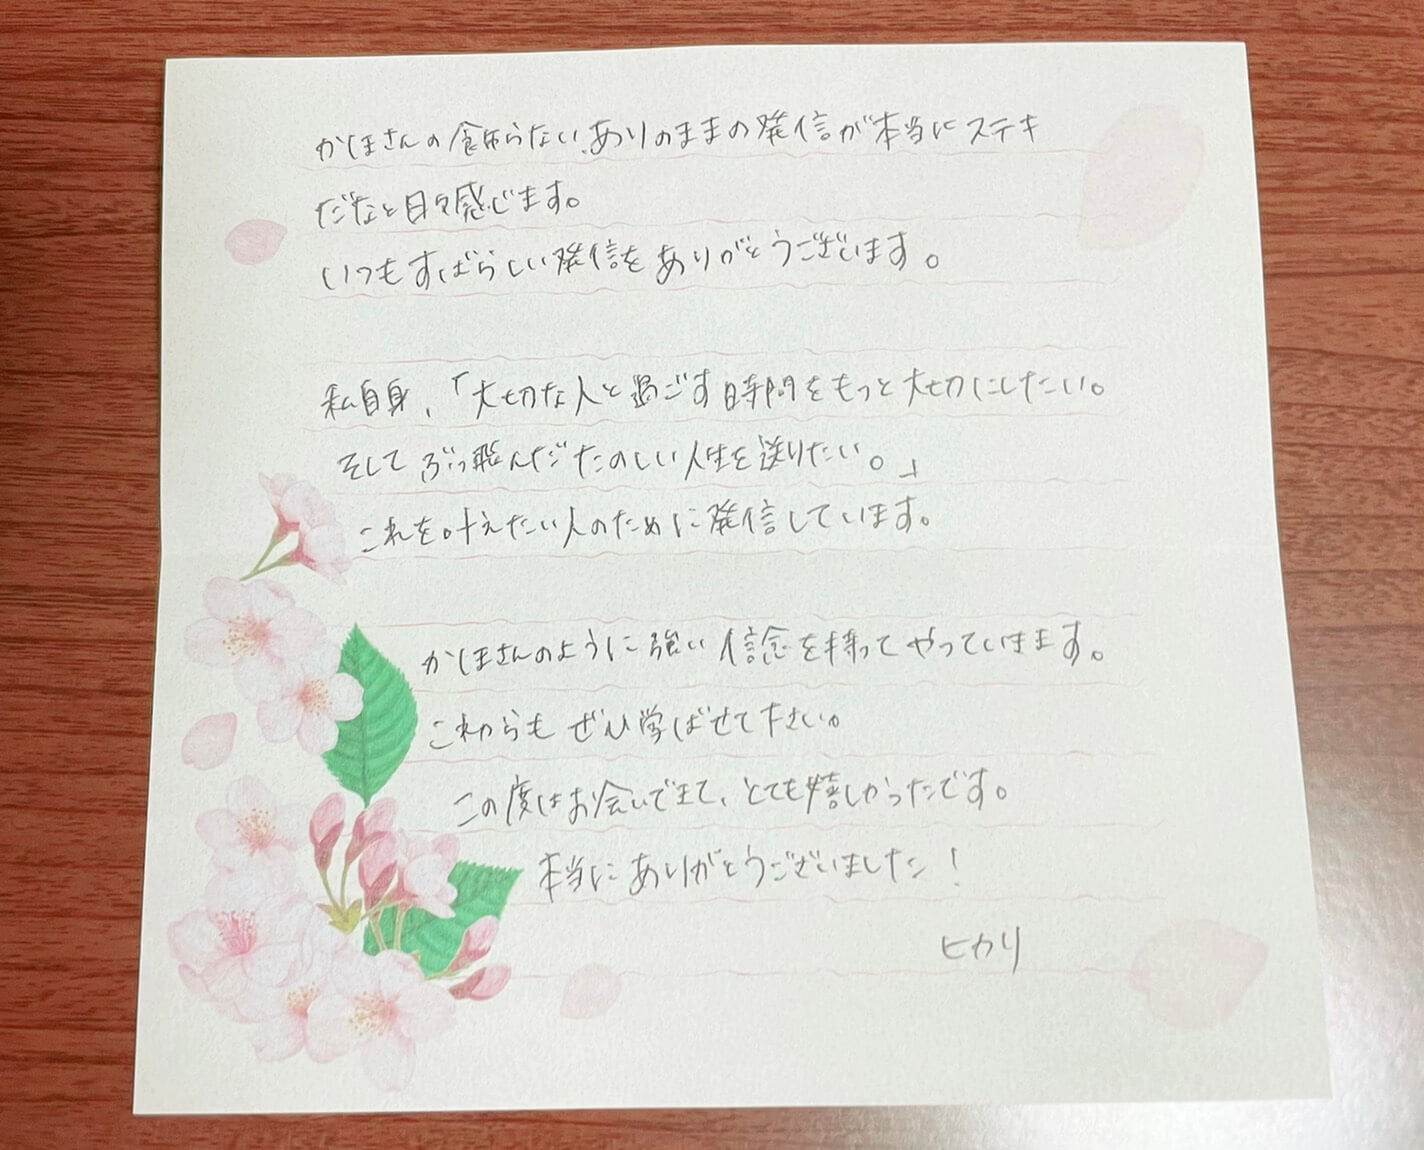 かほさんの飾らない、ありのままの発信が本当にステキ
だなと日々感じます。
いつもすばらしい発信をありがとうございます。
私自身、「大切な人と過ごす時間をもっと大切にしたい。
そしてぶっ飛んだたのしい人生を送りたい。」
これを叶えたい人のために発信しています。
かほさんのように強い信念を持ってやっていきます。
これからもぜひ学ばせて下さい。
この度はお会いできて、とても嬉しかったです。
本当にありがとうございました!
ヒカリ